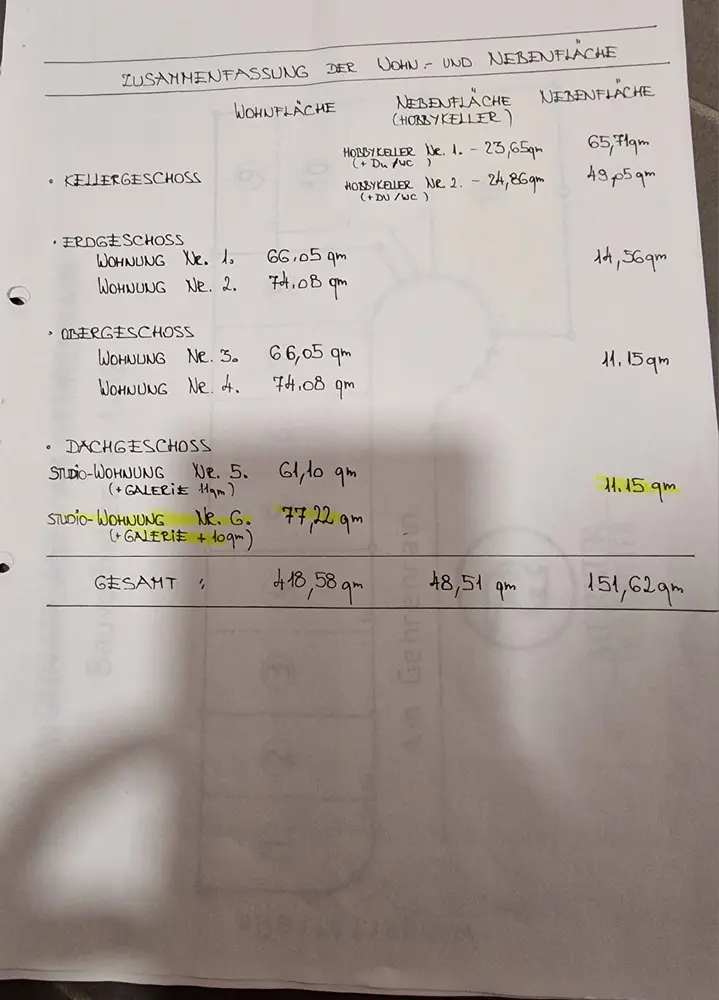 ZUSAMMENFASSUNG DER WOHN- UND NEBENFLÄCHE
WOHNFLÄCHE NEBENFLÄCHE (HOBBYKELLER) NEBENFLÄCHE
HOBBYKELLER NR. 1. - 23,65qm 65,71qm
(+ DU/WC )
• KELLERGESCHOSS HOBBYKELLER NR. 2. - 24,86qm 49,05qm
(+DU/WC )
• ERDGESCHOSS
WOHNUNG NR. 1. 66,05 qm 14,56qm
WOHNUNG NR. 2. 74,08 qm
• OBERGESCHOSS
WOHNUNG NR. 3. 66,05 qm 11.15qm
WOHNUNG NR. 4. 74.08 qm
• DACHGESCHOSS
STUDIO-WOHNUNG NR. 5. 61,10 qm 11.15 qm
(+GALERIE 11qm)
STUDIO-WOHNUNG NR. 6. 77,22 qm
(+GALERIE + 10qm)
GESAMT : 418,58qm 48,51 qm 151,62qm
am Gehrenrain